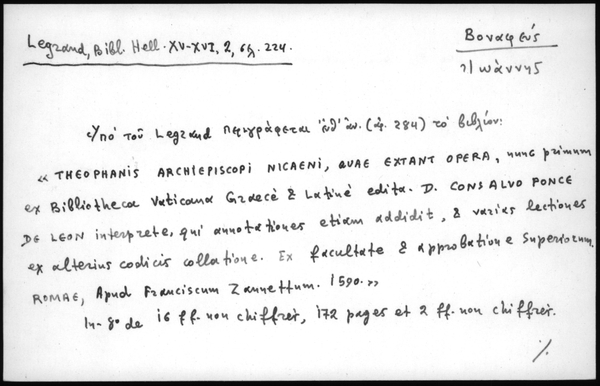 Legrand, Bibl. Hell. XV-XVI, 2, σελ. 224.
Βοναφεύς
Ἰωάννης
Ὑπό τοῦ Legrand περιγράφεται (ἀρ. 284) τό βιβλίον:
« THEOPHANIS ARCHIEPISCOPI NICAENI, QUAE EXTANT OPERA, nunc primum
ex Bibliotheca Vaticana Graecè & Latinè edita. D. CONSALVO PONCE
DE LEON interprete, qui annotationes etiam addidit, & varias lectiones
ex alterius codicis collatione. Ex facultate & approbatione Superiorum.
ROMAE, Apud Franciscum Zannettum. 1590. »
In-8º de 16 ff. non chiffrés, 172 pages et 2 ff. non chiffrés.
./.